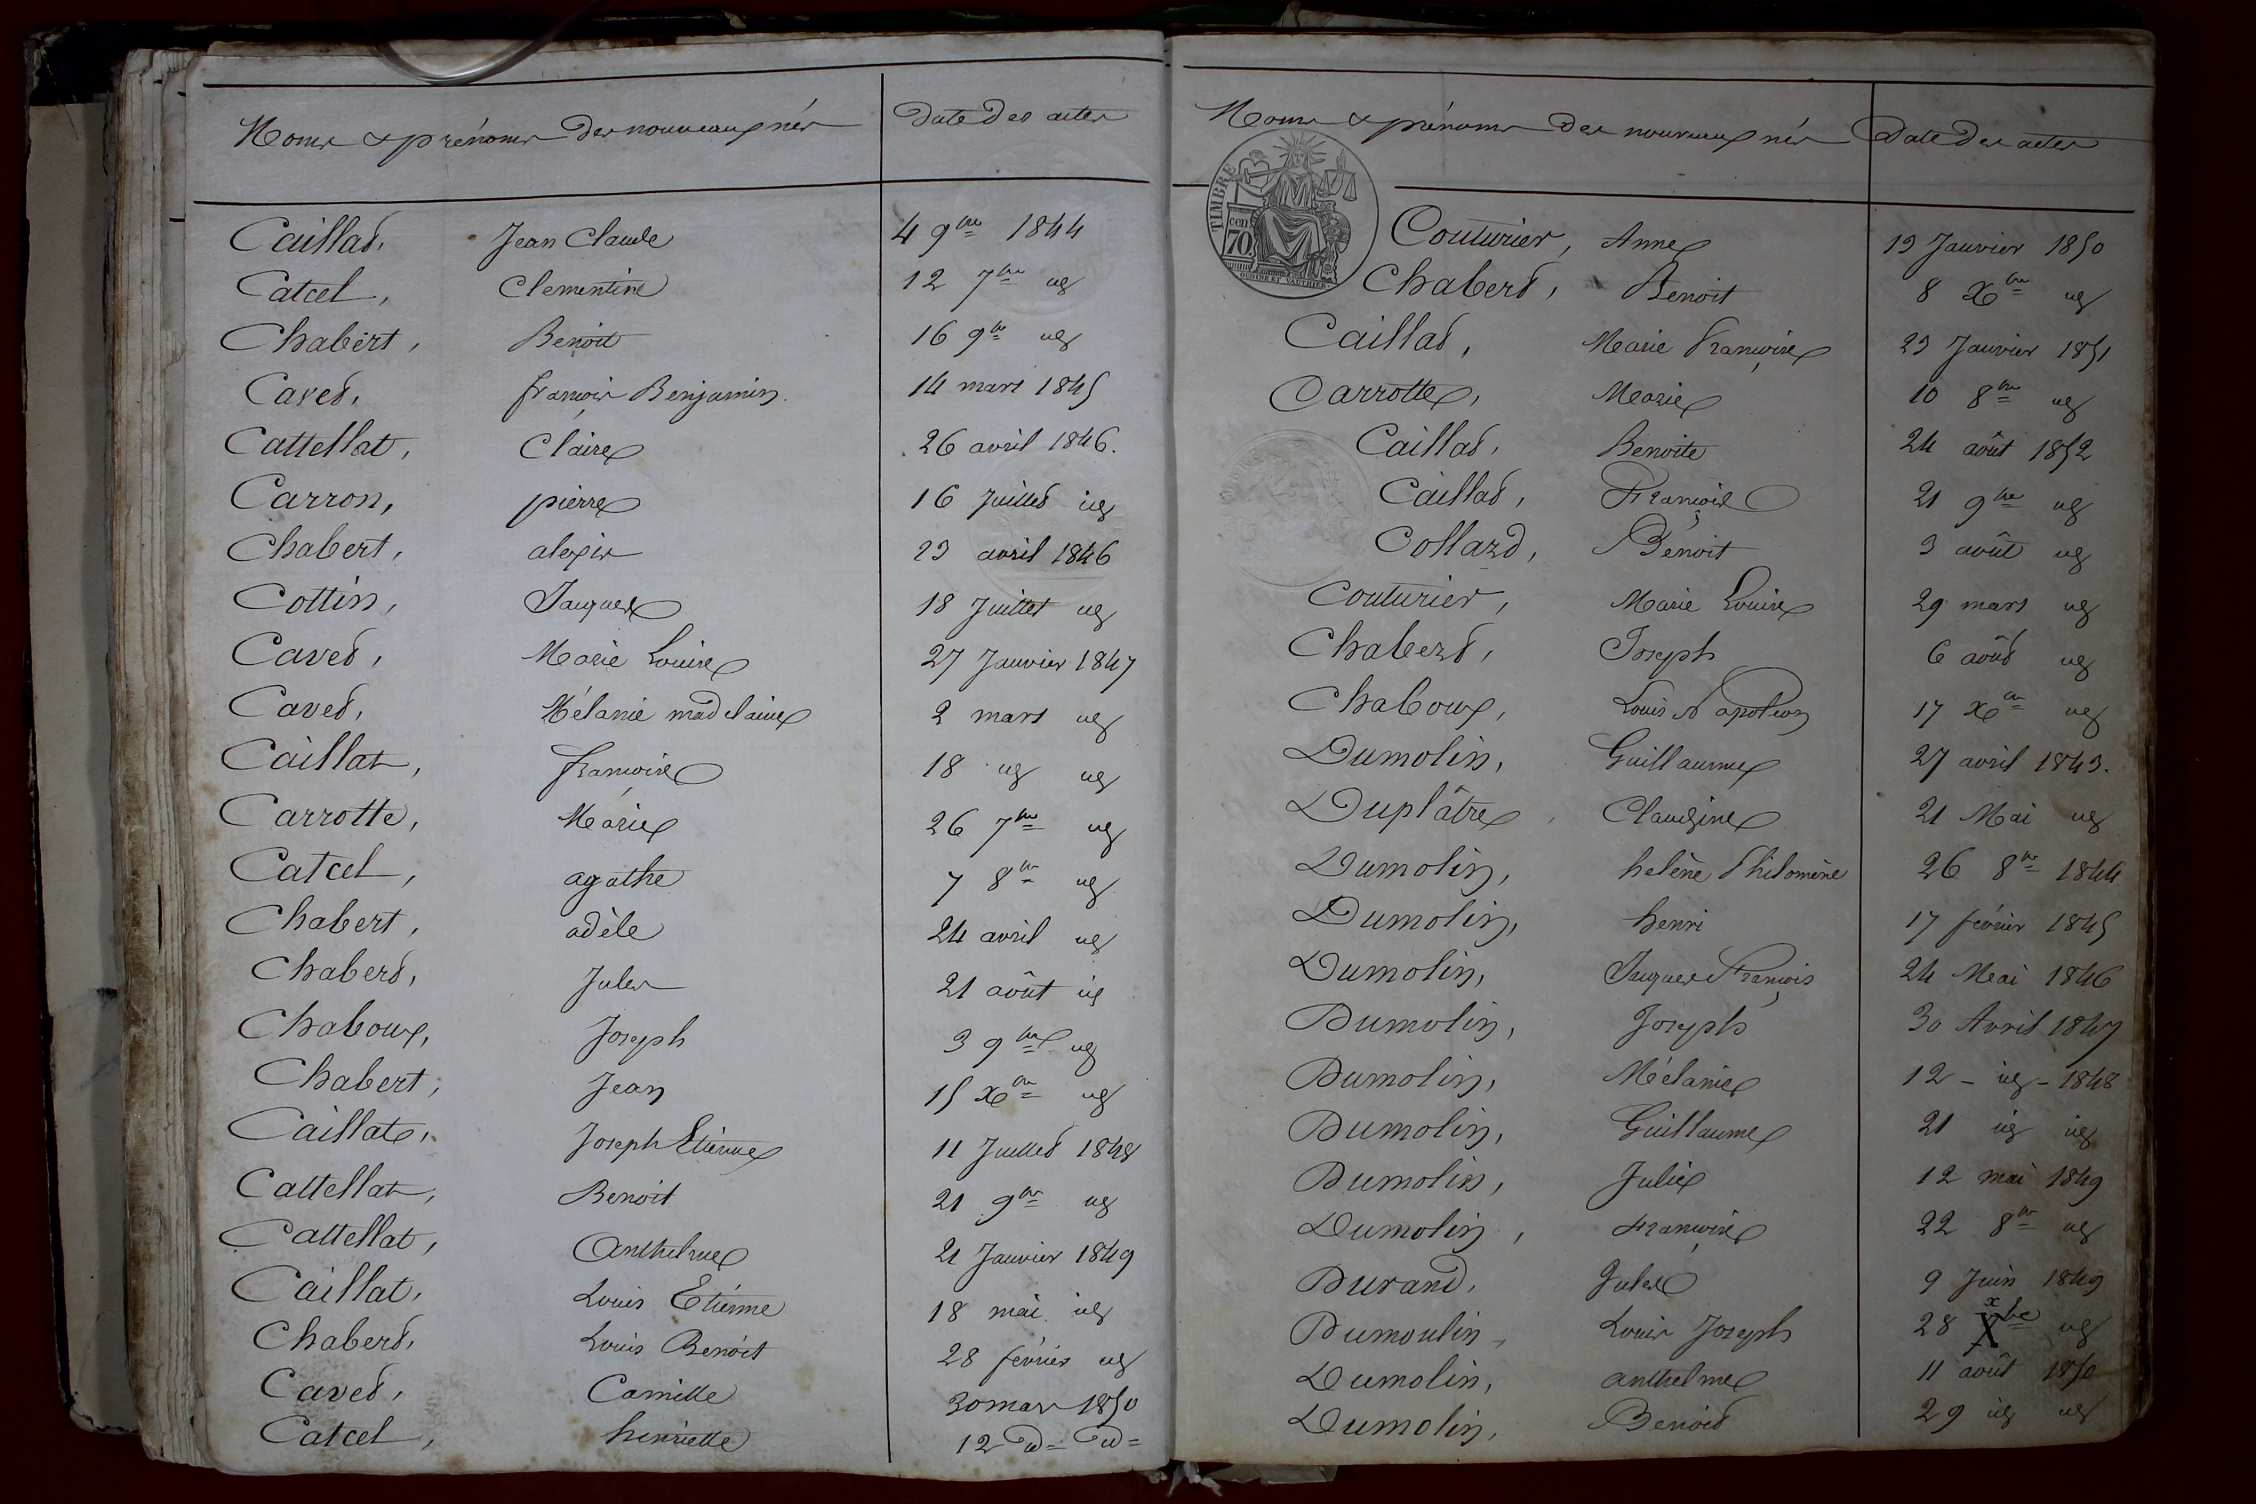 Noms & prénoms des nouveaux nés Date des actes
Caillat, Jean Claude 4 9bre 1844
Catcel, Clementine 12 7bre id
Chabert, Benoit 16 9bre id
Cavet, françois Benjamin 14 mars 1845
Cattellat, Claire 26 avril 1846.
Carron, pierre 16 Juillet id
Chabert, alexis 23 avril 1846
Cottin, Jacques 18 Juillet id
Cavet, Marie Louise 27 Janvier 1847
Cavet, Mélanie madelaine 2 mars id
Caillat, françoise 18 id id
Carrotte, Marie 26 7bre id
Catcel, agathe 7 8bre id
Chabert, adèle 24 avril id
Chabert, Jules 21 août id
Chaboux, Joseph 3 9bre id
Chabert, Jean 15 Xbre id
Caillat, Joseph Etienne 11 Juillet 1848
Cattellat, Benoit 21 9bre id
Cattellat, Anthelme 21 Janvier 1849
Caillat, Louis Etienne 18 mai id
Chabert, Louis Benoit 28 février id
Cavet, Camille 30 mars 1850
Catcel, henriette 12 d= d=
Noms & prénoms des nouveaux nés Date des actes
TIMBRE
CEN
70
Couturier, Anne 19 Janvier 1850
Chabert, Benoit 8 Xbre id
Caillat, Marie Françoise 23 Janvier 1851
Carrotte, Marie 10 8bre id
Caillat, Benoite 24 août 1852
Caillat, François 21 9bre id
Collard, Benoit 3 août id
Couturier, Marie Louise 29 mars id
Chabert, Joseph 6 août id
Chaboux, Louis Napoléon 17 Xbre id
Dumolin, Guillaume 27 avril 1843.
Duplâtre, Claudine 21 Mai id
Dumolin, helène Philomène 26 8bre 1844
Dumolin, henri 17 février 1845
Dumolin, Jacques François 24 Mai 1846
Dumolin, Joseph 30 Avril 1847
Dumolin, Mélanie 12 - id - 1848
Dumolin, Guillaume 21 id id
Dumolin, Julie 12 mai 1849
Dumolin, françoise 22 8bre id
Durand, Jules 9 Juin 1849
Dumoulin, Louis Joseph 28 Xbre id
Dumolin, anthelme 11 août 1850
Dumolin, Benoit 29 id id